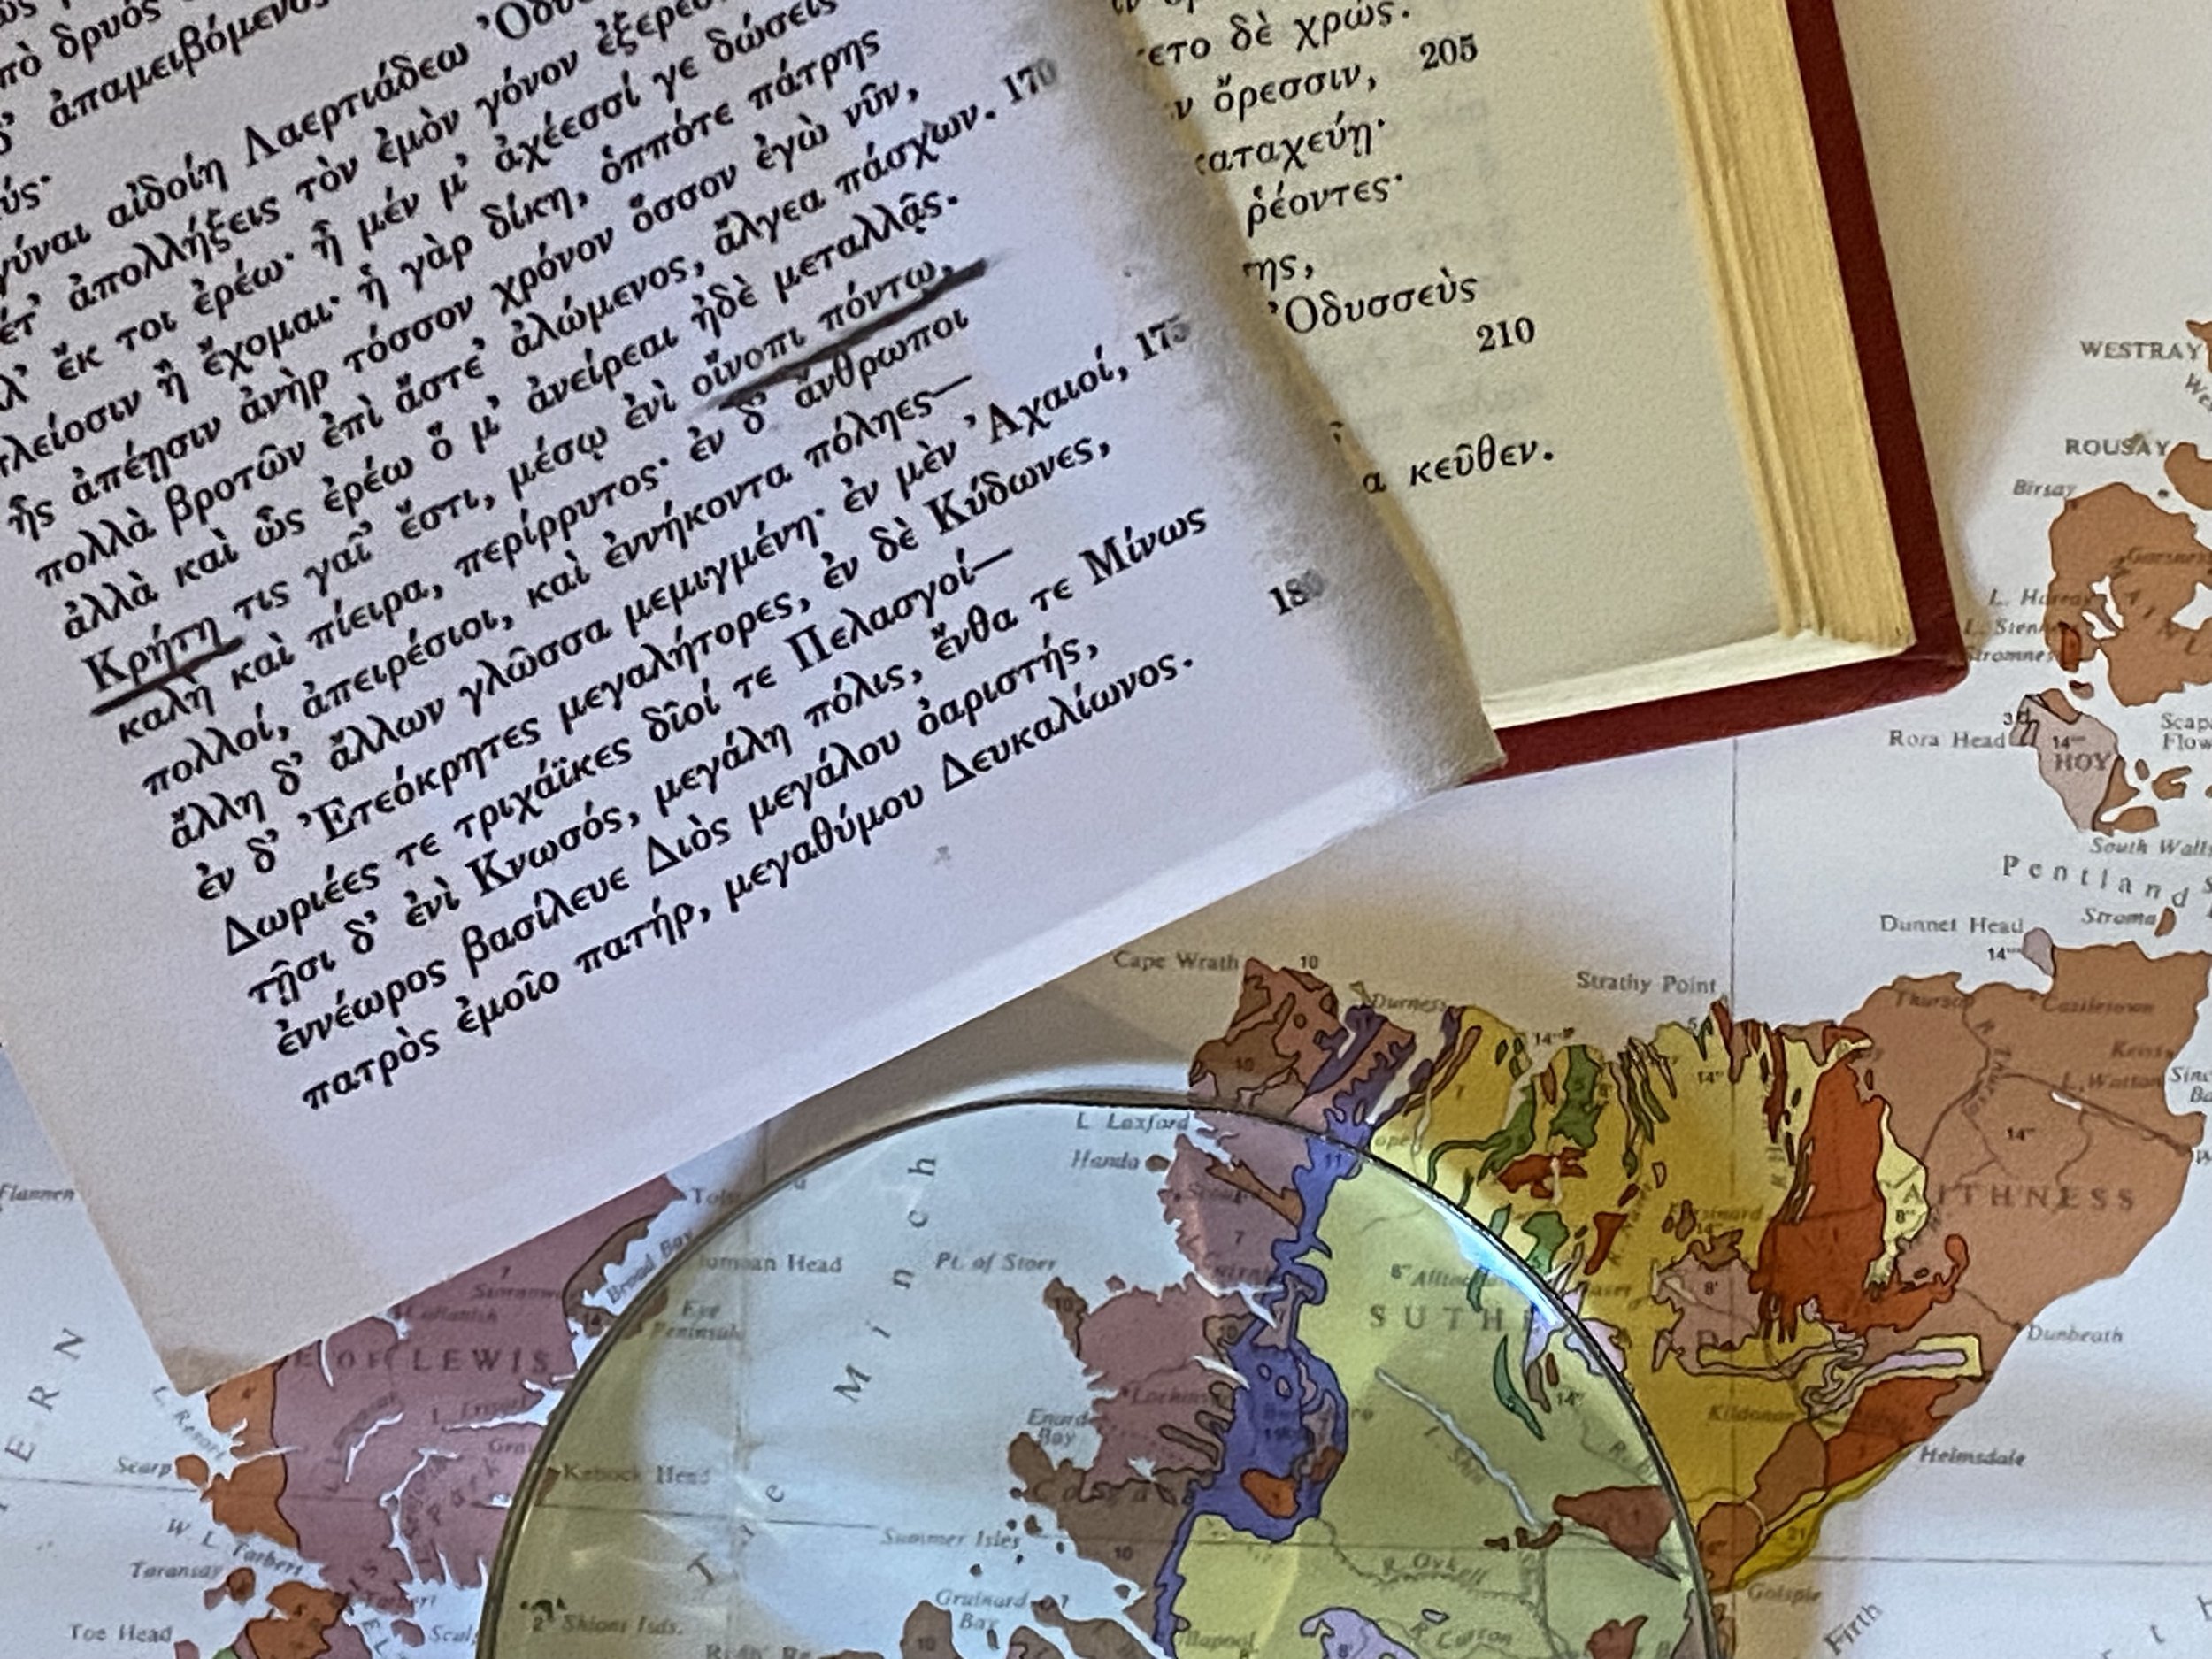 πὸ δρυὸς
δ’ ἀπαμειβόμενος
ύς·
γύναι αἰδοίη Λαερτιάδεω Ὀδυ
έτ’ ἀπολλήξεις τὸν ἐμὸν γόνον ἐξερέο
λ’ ἔκ τοι ἐρέω· ἦ μέν μ’ ἀχέεσσί γε δώσεις
πλείοσιν ἢ ἔχομαι· ἡ γὰρ δίκη, ὁππότε πάτρης
ἧς ἀπέῃσιν ἀνὴρ τόσσον χρόνον ὅσσον ἐγὼ νῦν,
πολλὰ βροτῶν ἐπὶ ἄστε’ ἀλώμενος, ἄλγεα πάσχων. 170
ἀλλὰ καὶ ὧς ἐρέω ὅ μ’ ἀνείρεαι ἠδὲ μεταλλᾷς.
Κρήτη τις γαῖ’ ἔστι, μέσῳ ἐνὶ οἴνοπι πόντῳ,
καλὴ καὶ πίειρα, περίρρυτος· ἐν δ’ ἄνθρωποι
πολλοί, ἀπειρέσιοι, καὶ ἐννήκοντα πόληες—
ἄλλη δ’ ἄλλων γλῶσσα μεμιγμένη· ἐν μὲν Ἀχαιοί, 175
ἐν δ’ Ἐτεόκρητες μεγαλήτορες, ἐν δὲ Κύδωνες,
Δωριέες τε τριχάϊκες δῖοί τε Πελασγοί—
τῇσι δ’ ἐνὶ Κνωσός, μεγάλη πόλις, ἔνθα τε Μίνως
ἐννέωρος βασίλευε Διὸς μεγάλου ὀαριστής,
πατρὸς ἐμοῖο πατήρ, μεγαθύμου Δευκαλίωνος. 180
ετο δὲ χρώς.
ν ὄρεσσιν, 205
καταχεύῃ·
ῥέοντες·
ης,
Ὀδυσσεὺς
210
α κεῦθεν.
WESTRAY
ROUSAY
Birsay
L. Harray
L. Stenn
Stromness
Rora Head
14‴
HOY
Scapa
Flow
South Walls
Pentland
Stroma
Dunnet Head
14‴
Cape Wrath
10
Durness
Strathy Point
Thurso
Castletown
Keiss
L. Watten
Sinc
Ba
14″
AITHNESS
8″
Dunbeath
Kildonan
Helmsdale
21
Golspie
Firth
L. Laxford
Handa
Scourie
7
11
Pt. of Stoer
The Minch
SUTHE
L. Shin
14″
Lochinver
Enard
Bay
Coigach
Summer Isles
10
Gruinard
Bay
R. Oykell
R. Carron
Ullapool
Flannen
Broad Bay
Tiumpan Head
Eye
Peninsula
Stornoway
Callanish
E OF LEWIS
L. Resort
Scarp
Park
W. L. Tarbert
Taransay
Tarbert
Toe Head
Scalp
Kebock Head
Shiant Isds.